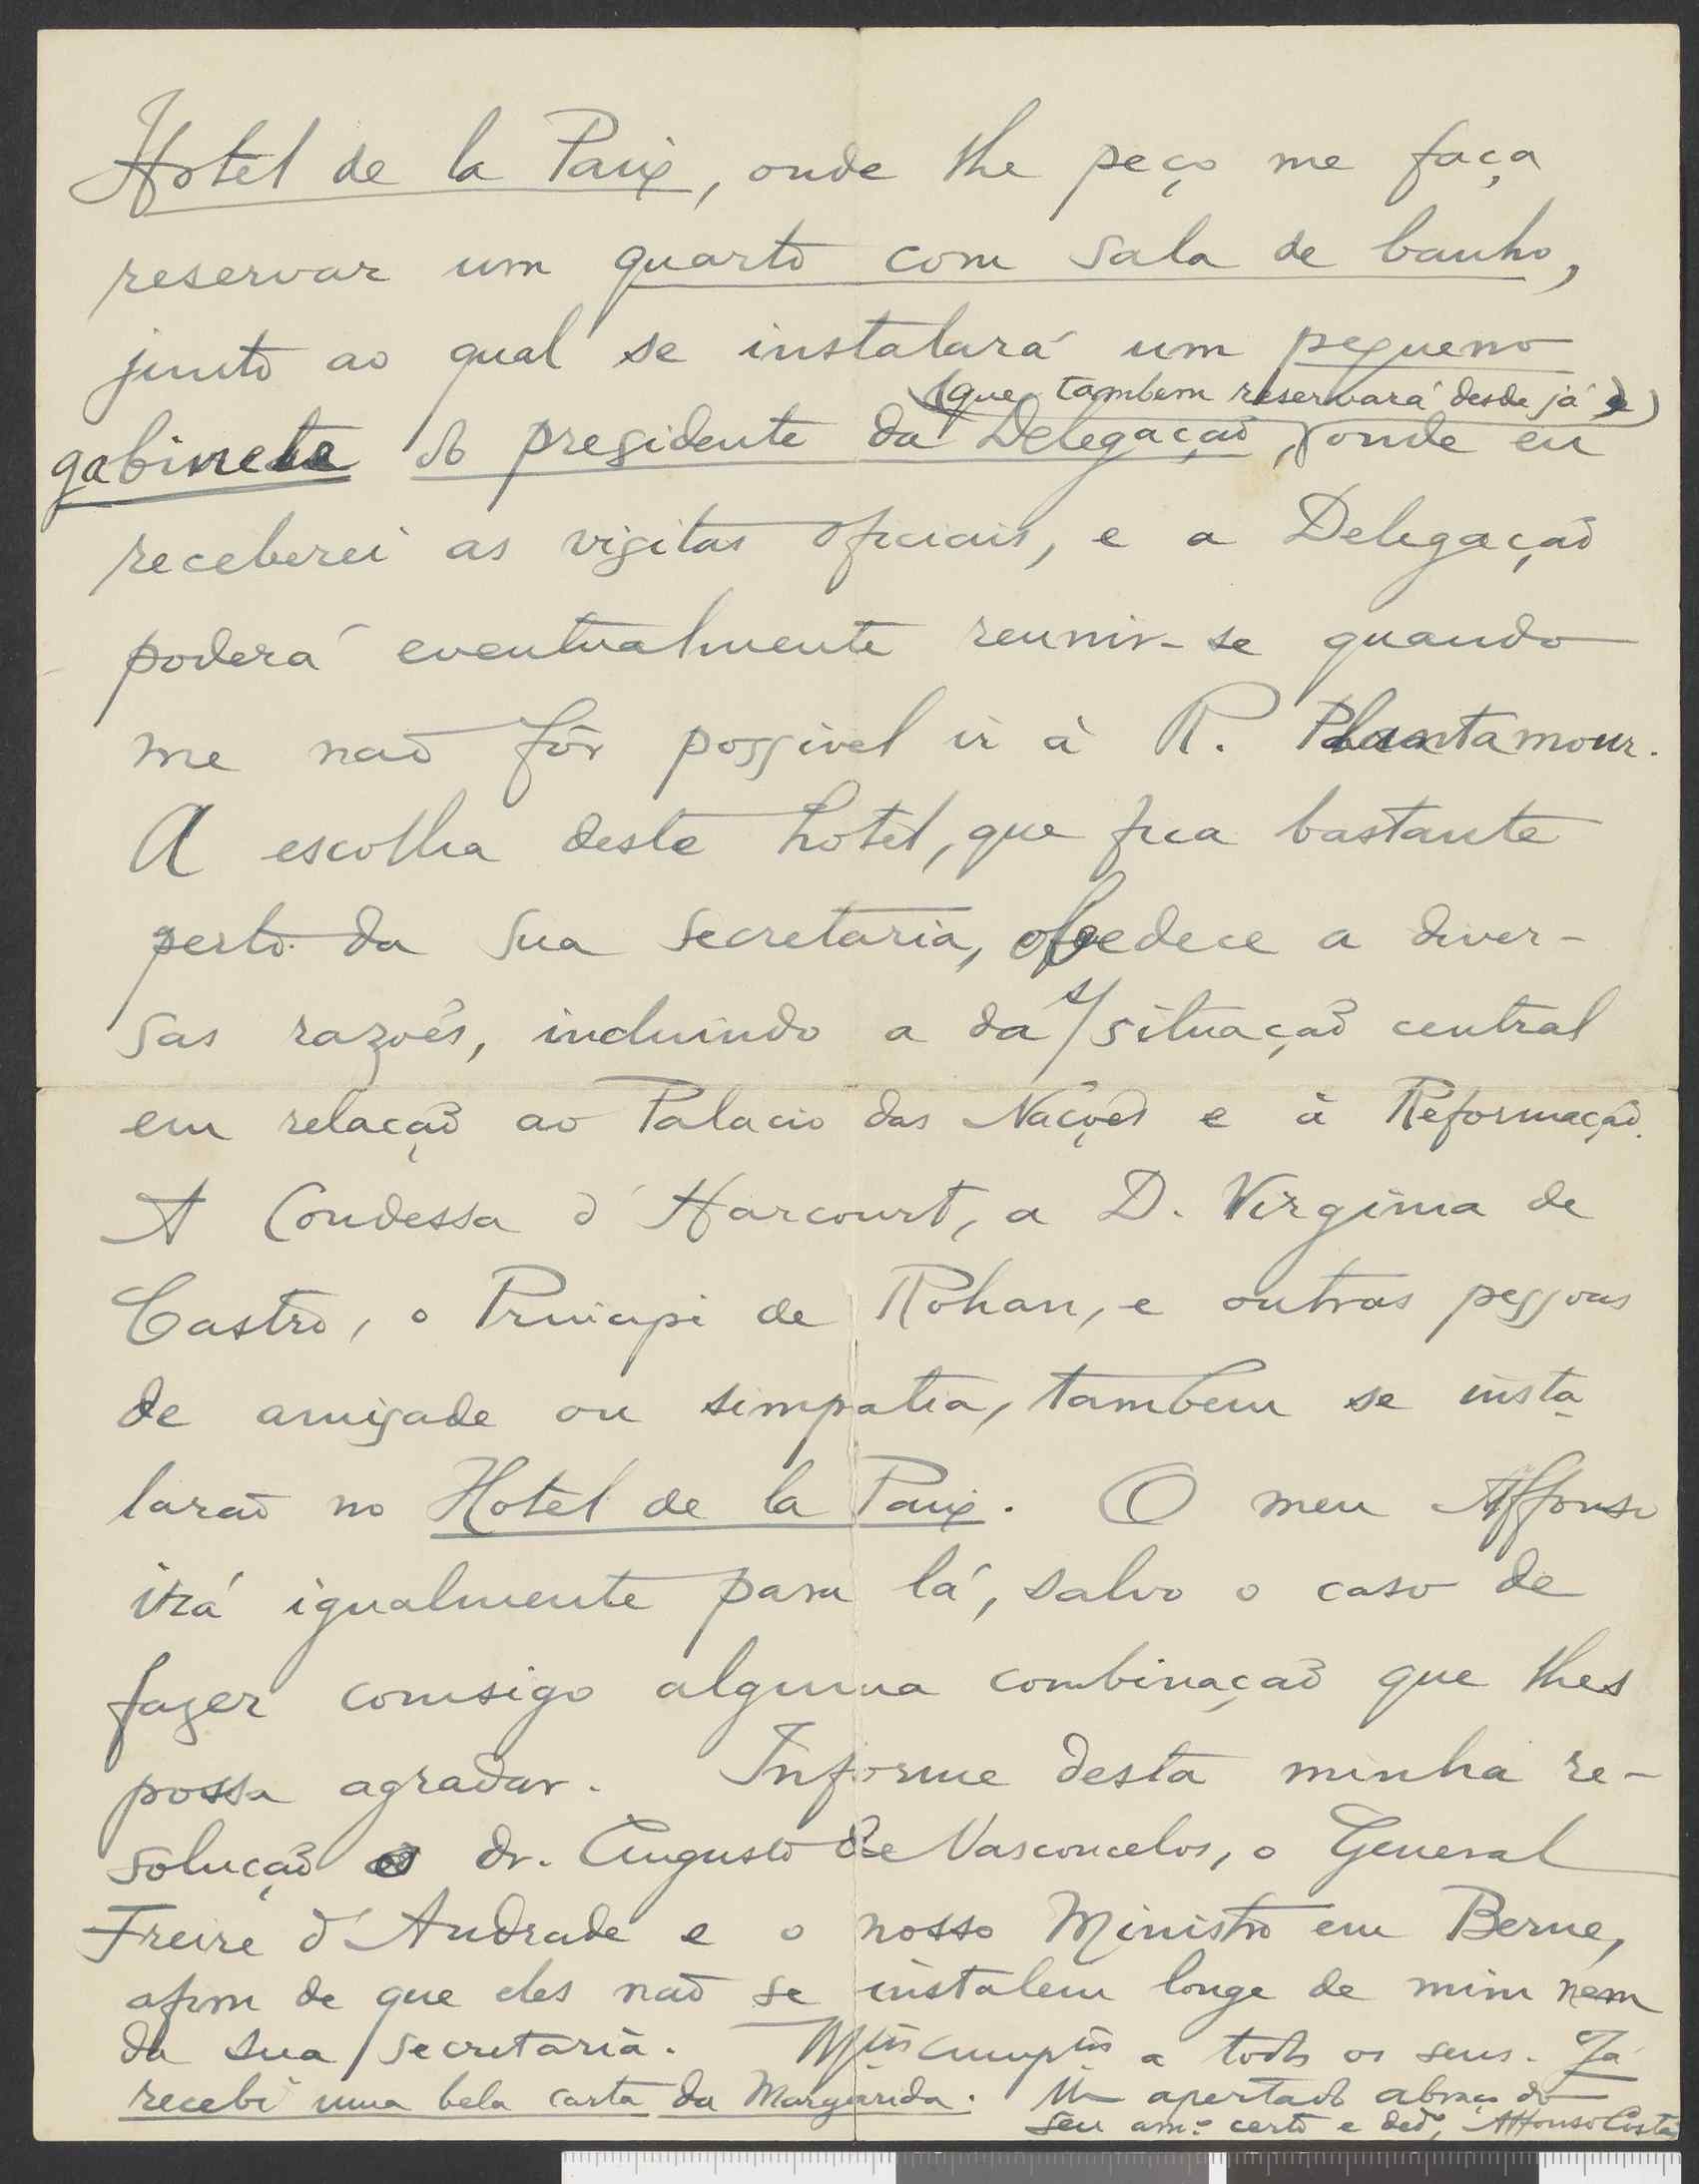 Hotel de la Paix, onde lhe peço me faça
reservar um quarto com sala de banho,
junto ao qual se instalará um pequeno
(que tambem reservará desde já)
gabinete do presidente da Delegação, onde eu
receberei as visitas oficiais, e a Delegação
poderá eventualmente reunir-se quando
me não fôr possivel ir à R. Plantamour.
A escolha deste hotel, que fica bastante
perto da sua secretaria, obedece a diver-
sas razões, incluindo a da s/ situação central
em relação ao Palacio das Nações e à Reformação.
A Condessa d'Harcourt, a D. Virginia de
Castro, o Principe de Rohan, e outras pessoas
de amisade ou simpatia, tambem se insta
larão no Hotel de la Paix. O meu Affonso
irá igualmente para lá, salvo o caso de
fazer comsigo alguma combinação que lhes
possa agradar. Informe desta minha re-
solução o dr. Augusto de Vasconcelos, o General
Freire d'Andrade e o nosso Ministro em Berne,
afim de que eles não se instalem longe de mim nem
da sua secretaria. Mtos cumptos a todos os seus. Já
recebi uma bela carta da Margarida. Um apertado abraço do
seu am.º certo e dedº, Affonso Costa